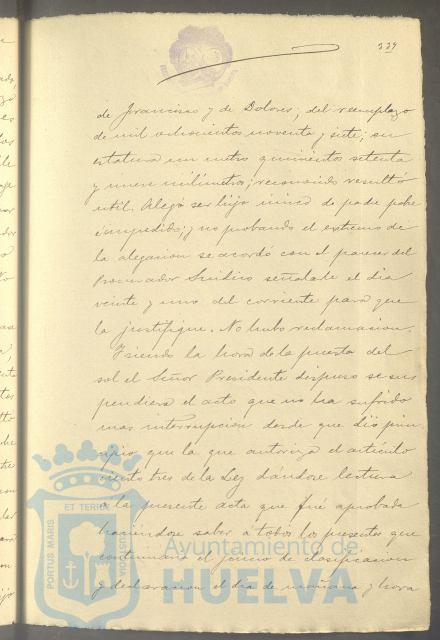 339
de Francisco y de Dolores; del reemplazo
de mil ochocientos noventa y siete; su
estatura un metro quinientos setenta
y nueve milimetros; reconocido resultó
util. Alegó ser hijo unico de padre pobre
é impedido; y no probando el extremo de
la alegacion se acordó con el parecer del
Procurador Sindico señalarle el dia
veinte y uno del corriente para que
lo justifique. No hubo reclamacion.
Y siendo la hora de la puesta del
sol el Señor Presidente dispuso se sus
pendiera el acto que no ha sufrido
mas interrupcion desde que dió prin
cipio que la que autoriza el artículo
tres de la Ley dándose lectura
á la presente acta que fué aprobada
haciendose saber á todos los presentes que
continuará el juicio de clasificacion
y declaracion el dia de mañana y hora
PORTUS MARIS ET TERRÆ CUSTODIA
Ayuntamiento de
HUELVA